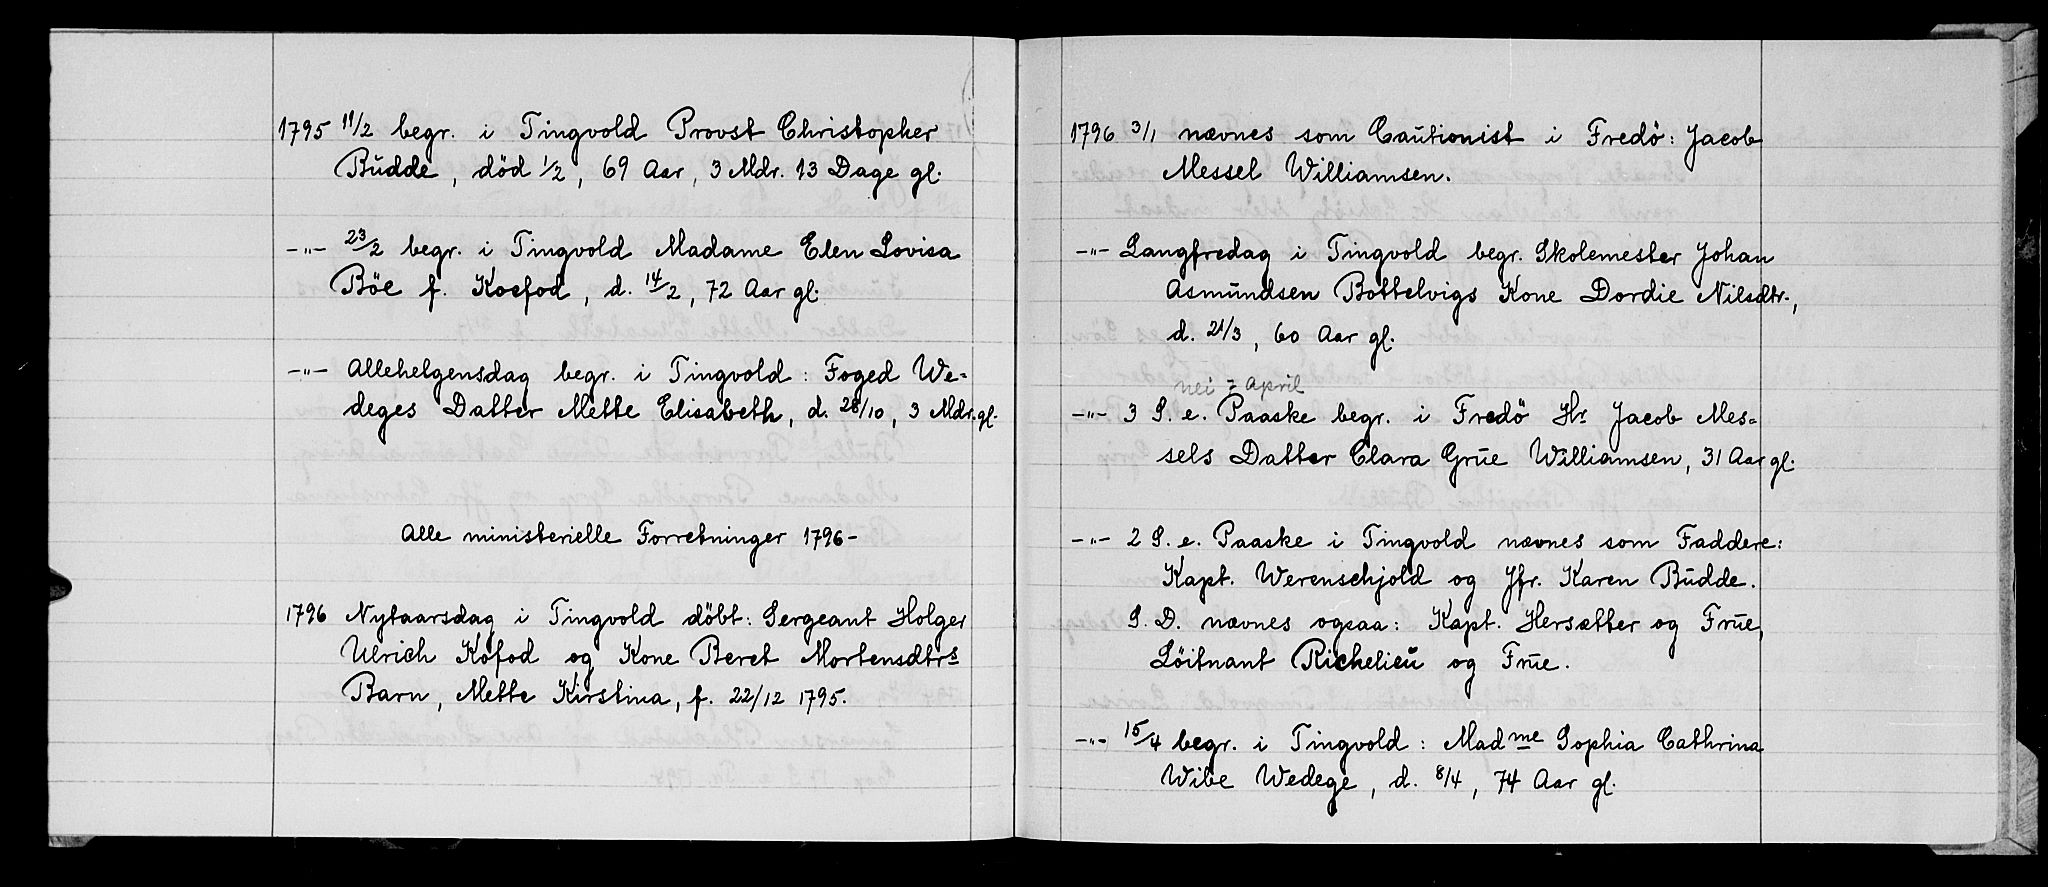 1795 11/2 begr. i Tingvold Provst Christopher
Budde, död 1/2, 69 Aar, 3 Mdr. 13 Dage gl.
-"- 23/2 begr. i Tingvold Madame Elen Lovisa
Böe f. Koefod, d. 14/2, 72 Aar gl.
-"- Allehelgensdag begr. i Tingvold: Foged We-
deges Datter Mette Elisabeth, d. 28/10, 3 Mdr. gl.
Alle ministerielle Forretninger 1796-
1796 Nytaarsdag i Tingvold döbt: Sergeant Holger
Ulrich Kofod og Kone Beret Mortensdtrs
Barn, Mette Kirstina, f. 22/12 1795.
1796 3/1 nævnes som Cautionist i Fredö: Jacob
Messel Williamsen.
-"- Langfredag i Tingvold begr. Skolemester Johan
Asmundsen Bottelvigs Kone Dordie Nilsdtr.,
d. 21/3, 60 Aar gl.
nei 7 April
-"- 3 S. e. Paaske begr. i Fredö Hr. Jacob Mes=
sels Datter Clara Grue Williamsen, 31 Aar gl.
-"- 2 S. e. Paaske i Tingvold nævnes som Faddere:
Kapt. Werenschjold og Jfr. Karen Budde.
S. D. nævnes ogsaa: Kapt. Hersætter og Frue,
Löitnant Richelieu og Frue.
-"- 15/4 begr. i Tingvold: Madme Sophia Cathrina
Wibe Wedege, d. 8/4, 74 Aar gl.